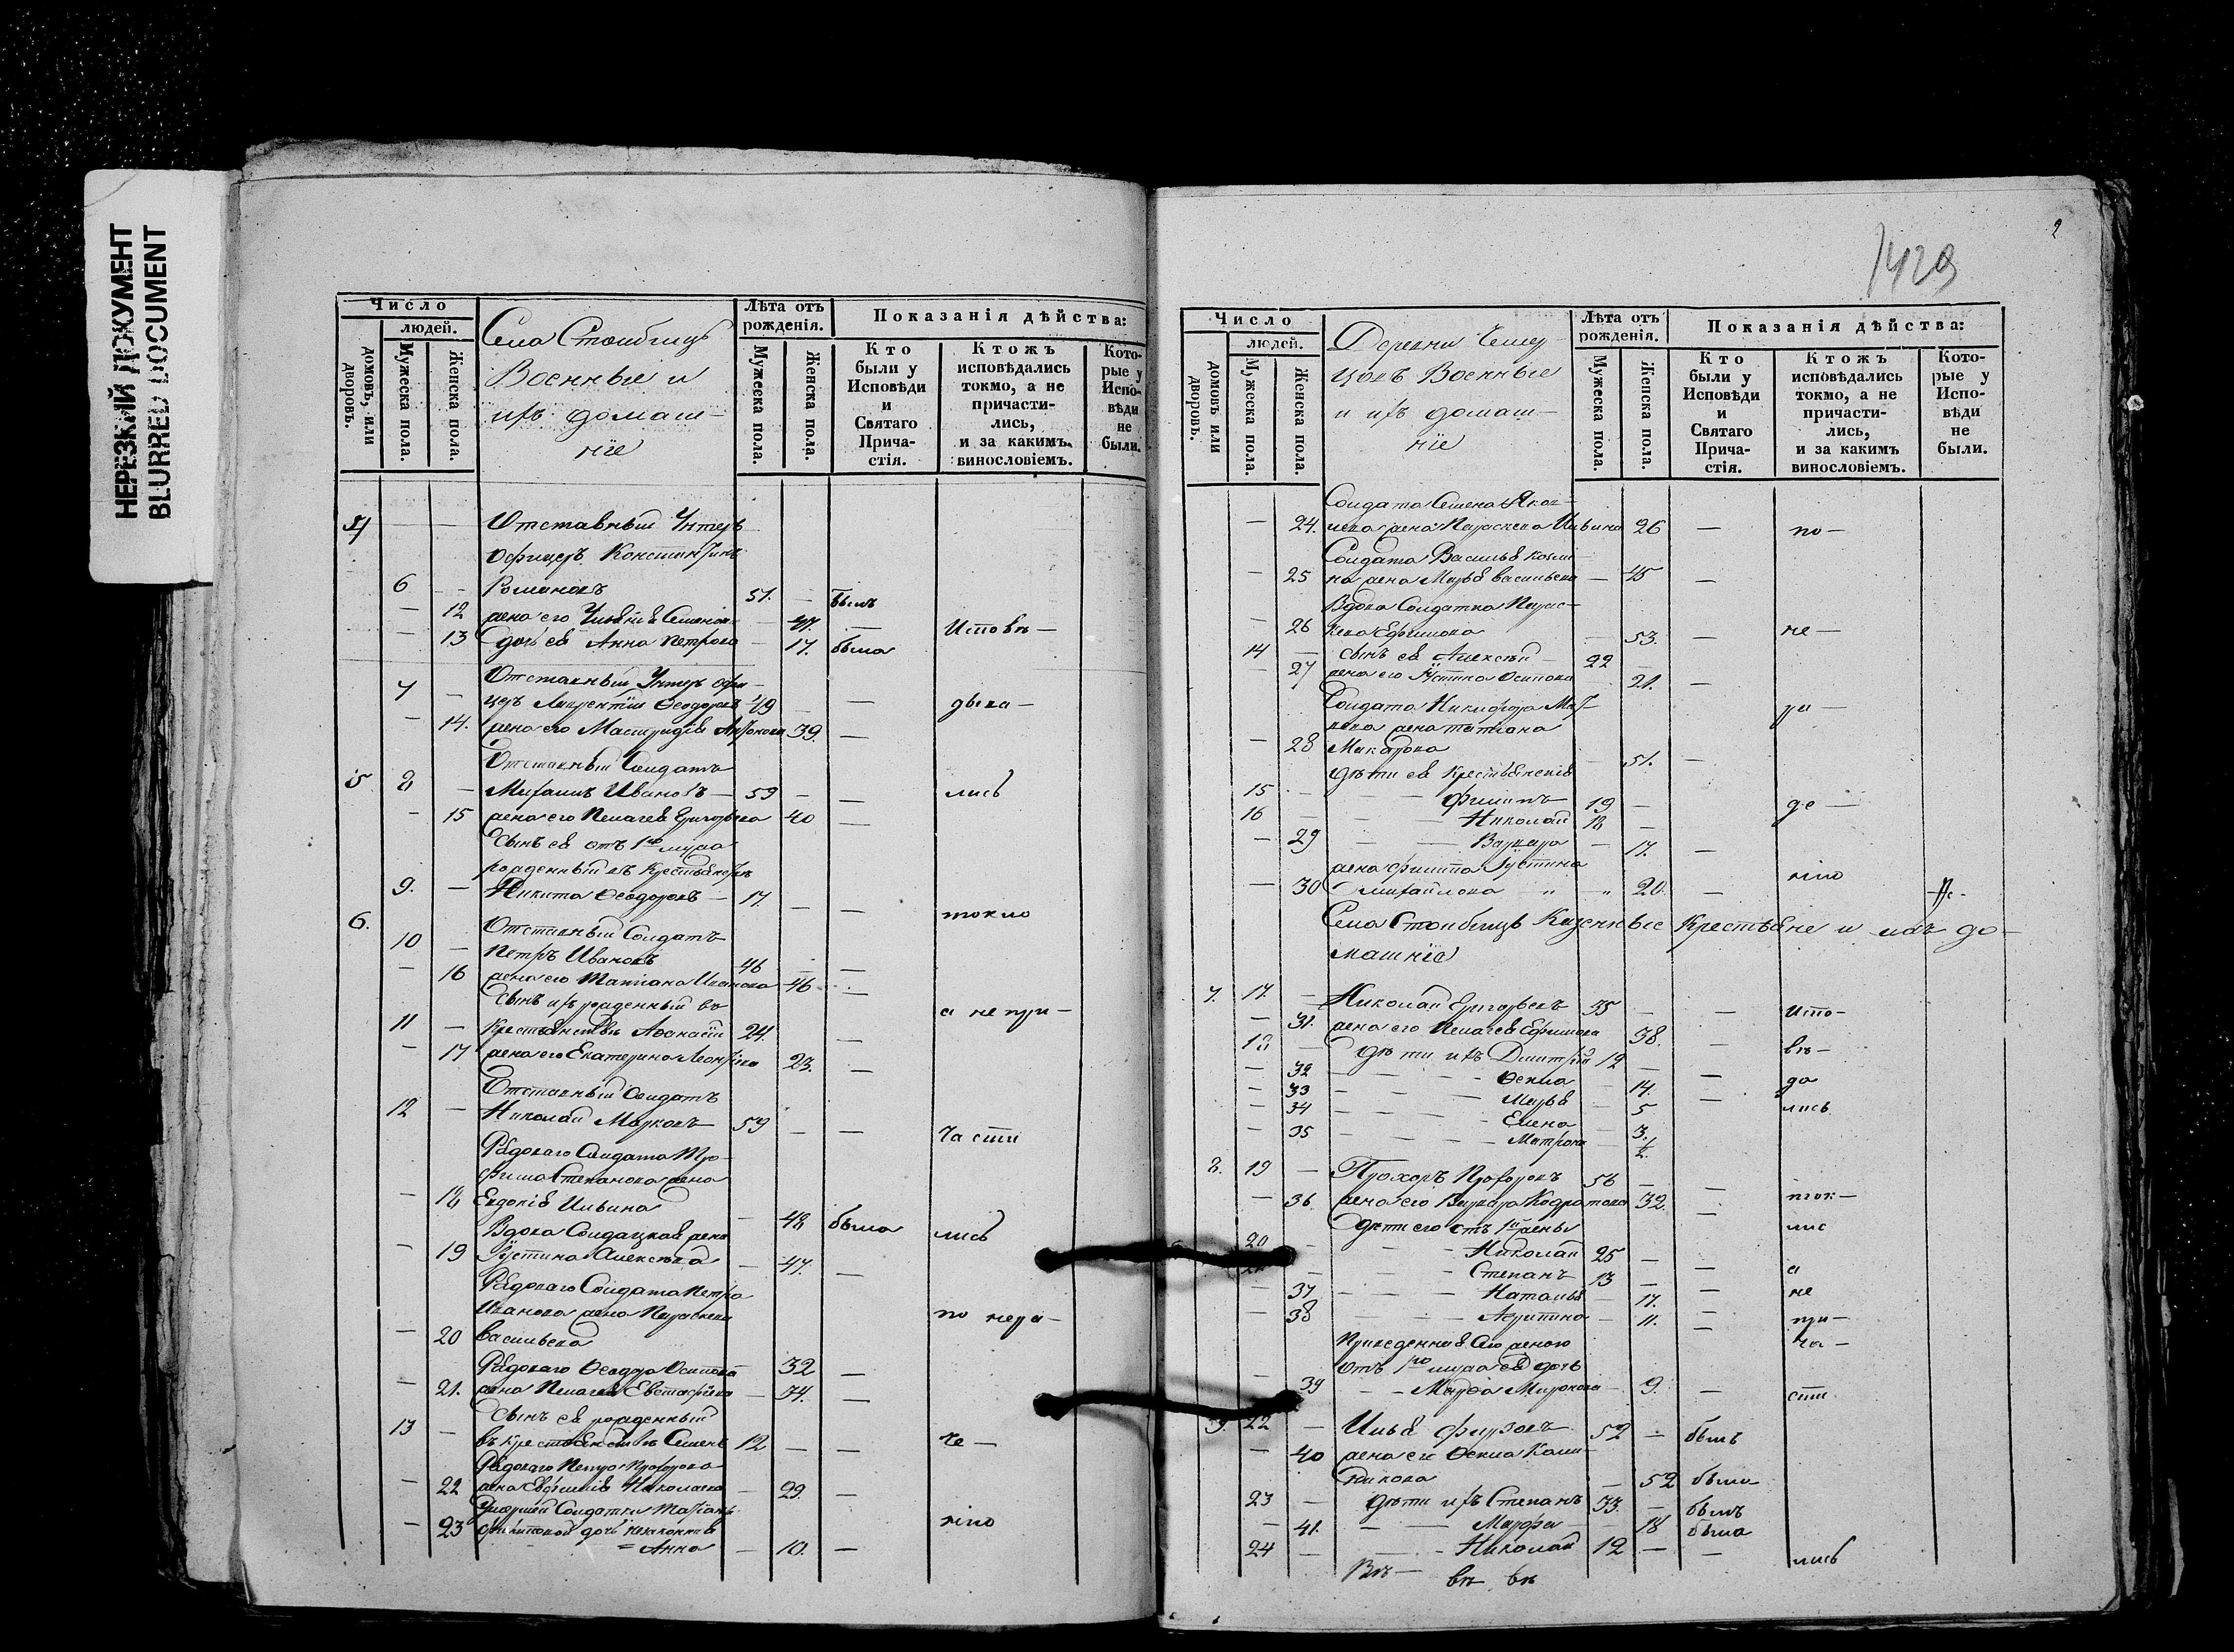 НЕРЕЗКИЙ ДОКУМЕНТ
BLURRED DOCUMENT
Число
людей.
домовъ, или дворовъ.
Мужеска пола.
Женска пола.
Села Столбицъ
Военные и
ихъ домаш-
ніе
Лѣта отъ рожденія.
Мужеска пола.
Женска пола.
Показанія дѣйства:
Кто были у Исповѣди и Святаго Прича-стія.
Ктожъ исповѣдались токмо, а не причасти-лись, и за какимъ винословіемъ.
Кото-рые у Испо-вѣди не были.
Отставный Унтеръ
офицеръ Константинъ
6 — Романовъ 51. — былъ
— 12 жена его Семенова — 47. — Исповѣ—
— 13 дочь ея Анна Петрова — 17. была
Отставный Унтеръ офи-
7 — церъ Лаврентій Ѳеодоровъ 49 — — дыва—
— 14. жена его 39. —
Отставный Солдатъ
5 8 — Михаилъ Ивановъ — 59 — — лись
— 15 жена его Пелагея Григорьева 40 —
Сынъ ея отъ 1го мужа
рожденный въ Крестьянехъ
9. — Никита Ѳеодоровъ — 17. — — токмо
6. Отставный Солдатъ
10 — Петръ Ивановъ 46 — —
— 16 жена его Татіана Иванова 46 —
Сынъ ихъ рожденный въ а не при—
11 — Крестьянствѣ Аѳанасій 24. —
— 17 жена его Екатерина 23. —
Отставный Солдатъ
12 — Николай Марковъ 59 — — части
Рядоваго Солдата Тро-
фима Степанова жена
— 18 Евдокія Ильина — 48 была лись
Вдова Солдацкая жена
— 19 Іустина Алексѣева — 47. —
Рядоваго Солдата Петра
Иванова жена Параскева по нера—
— 20 Васильева 32 —
Рядоваго Ѳеодора Осипова
— 21. жена Пелагея Евстафіева — 34. —
Сынъ ея рожденный
13 — въ Крестьянствѣ Семенъ 12 — — че—
Рядоваго Петра Прохорова
— 22 жена Евфимія Николаева — 29. —
Умершей Солдатки Татіаны
— 23 Филиповой дочь незаконная нію
= Анна — 10. —
2
1429
Число
людей.
домовъ или дворовъ.
Мужеска пола.
Женска пола.
Деревни
Военные
и ихъ домаш-
ніе
Лѣта отъ рожденія.
Мужеска пола.
Женска пола.
Показанія дѣйства:
Кто были у Исповѣди и Святаго Прича-стія.
Ктожъ исповѣдались токмо, а не причасти-лись, и за какимъ винословіемъ.
Кото-рые у Испо-вѣди не были.
Солдата Семена Яков-
— 24. лева жена Параскева Ильина 26 — по—
Солдата Василья Козми-
— 25 на жена Марья Васильева — 45 —
Вдова Солдатка Парас-
— 26 кева Ефимова — 53. — не—
14 — Сынъ ея Алексѣй — 22 —
— 27 жена его Іустина Осипова 21. —
Солдата Никифора
жена Татіана ра—
— 28 Макарова — 51. —
дѣти ея Крестьянскія
15 — Филипъ 19 — де—
16 — Николай 18 —
— 29 Варвара — 17. —
жена Филиппа Іустина нію
— 30 Михайлова " — " 20. —
Села Столбицъ Казенные Крестьяне и ихъ до-
машніе
7. 17. — Николай Григорьевъ 35 — — Испо—
— 31. жена его Пелагея Ефимова 38. — вѣ—
18 — дѣти ихъ Дмитрій 12 — —
— 32 — Ѳекла — 14. — да
— 33 — Марья — 5 лись
— 34 — Елена — 3.
— 35 — Матрона — 1/2.
8. 19 — Прохоръ Прохоровъ 56 — —
— 36. жена его Варвара Кодратова 32. — ток—
дѣти его отъ 1й жены мо
20 — Николай 25 — —
21 — Степанъ 13 — — а
— 37 — Наталья — 17. — не
— 38 — Агрипина — 11. — при—
Приведенная Его женою ча—
отъ 1го мужа ея дочь
— 39 — Марѳа Миронова — 9. — сти
9. 22 — Илья Фирсовъ 52 — былъ
— 40 жена его Ѳекла Кали-
никова — 52 была
23 — дѣти ихъ Степанъ 33. — былъ
— 41. — Марфа — 18 была
24 — Николай 12 — — лись